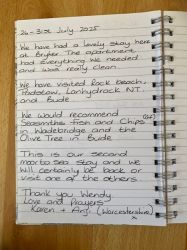 26-31st July 2025
We have had a lovely stay here
at Bryher. The apartment
had Everything we needed
and was really clean.
We have visited Rock beach,
Padstow, Lanhydrock N.T.
and Bude
We would recommend
Seasmiths Fish and Chips (GF)
in Wadebridge and the
Olive Tree in Bude
This is our second
Morto Sea stay and we
will certainly be back or
visit one of the others
Thank you Wendy
Love and Prayers
Karen + Anji (Worcestershire)
x